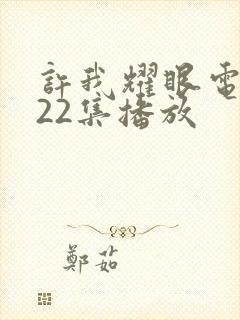 許我耀眼電
22集播放
鄭茹